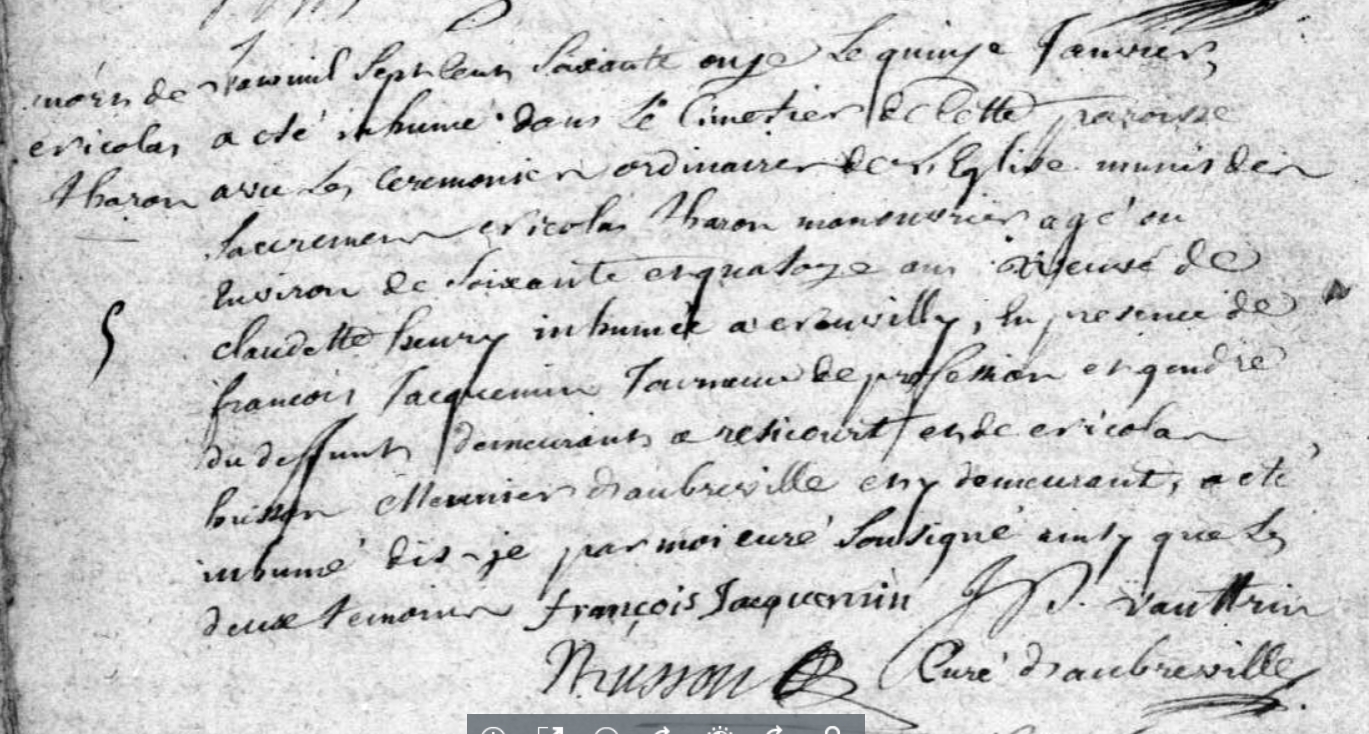 mort de
Nicolas
Tharon
Lan mil Sept Cent Soixante onze Le quinze Janvier,
a eté inhumé dans Le Cimetier de Cette paroisse
avec Les Ceremonies ordinaires de L'Eglise munis des
Sacremens Nicolas Tharon manouvrier agé ou
Environ de Soixante et quatorze ans veuf de
claudette henry inhumée a neuvilly, En presence de
françois Jacquemin Tourneur de profession et gendre
du deffunt demeurant a recicourt et de Nicolas
husson Meunier d'aubreville et y demeurant, a eté
inhumé dis-je par moi curé Soussigné ainsy que Les
deux temoins françois Jacquemin J P. Vauttrin
N husson Curé d'aubreville